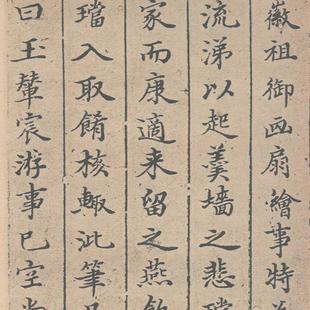 徽祖御画扇繪事特
流涕以起羹墻之悲璫
家而康適来留之燕飲
璫入取餚核輙泚筆
曰玉輦宸游事已空尚